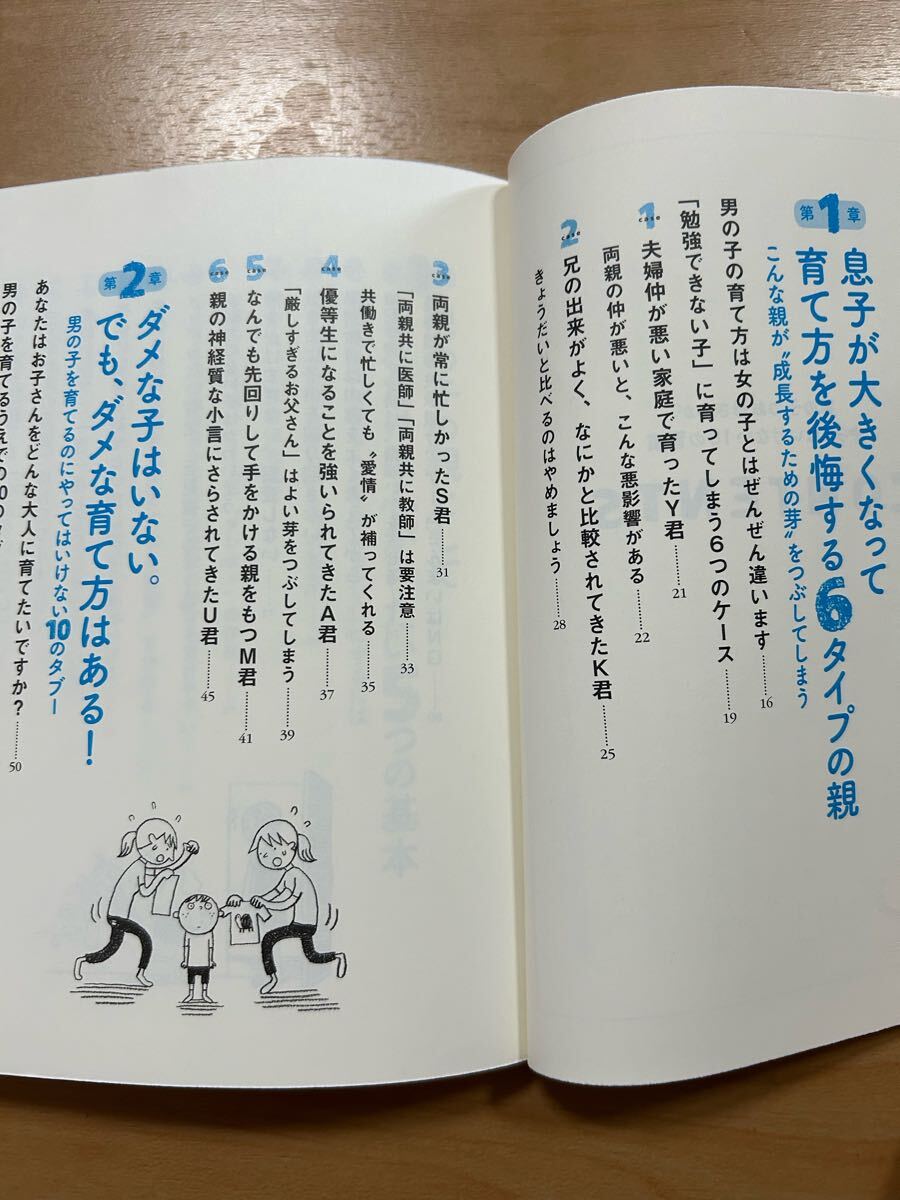 第1章
息子が大きくなって
育て方を後悔する6タイプの親
こんな親が“成長するための芽”をつぶしてしまう
男の子の育て方は女の子とはぜんぜん違います……16
「勉強できない子」に育ってしまう6つのケース……19
case 1 夫婦仲が悪い家庭で育ったY君……21
両親の仲が悪いと、こんな悪影響がある……22
case 2 兄の出来がよく、なにかと比較されてきたK君……25
きょうだいと比べるのはやめましょう……28
case 3 両親が常に忙しかったS君……31
「両親共に医師」「両親共に教師」は要注意……33
共働きで忙しくても“愛情”が補ってくれる……35
case 4 優等生になることを強いられてきたA君……37
「厳しすぎるお父さん」はよい芽をつぶしてしまう……39
case 5 なんでも先回りして手をかける親をもつM君……41
case 6 親の神経質な小言にさらされてきたU君……45
第2章
ダメな子はいない。
でも、ダメな育て方はある！
男の子を育てるのにやってはいけない10のタブー
あなたはお子さんをどんな大人に育てたいですか？……50
男の子を育てるうえでの10のタブ